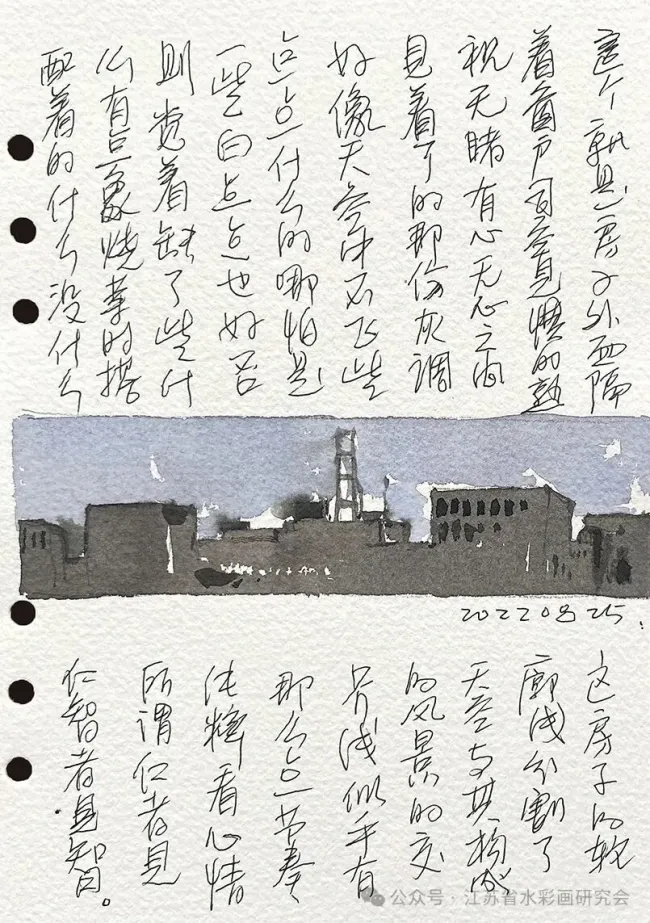 这个就是房子外面隔
着窗户司空见惯的熟
视无睹有心无心之间
见着了的那份灰调
好像天空中不飞些
点点什么的哪怕是
一些白点点也好否
则觉着缺了些什
么有点象烧菜时搭
配着的什么没什么
20220825.
这房子的软
廓线分割了
天空与其构成
的风景的交
界线似乎有
那么点节奏
纯粹看心情
所谓仁者见
仁智者见智。
公众号 · 江苏省水彩画研究会